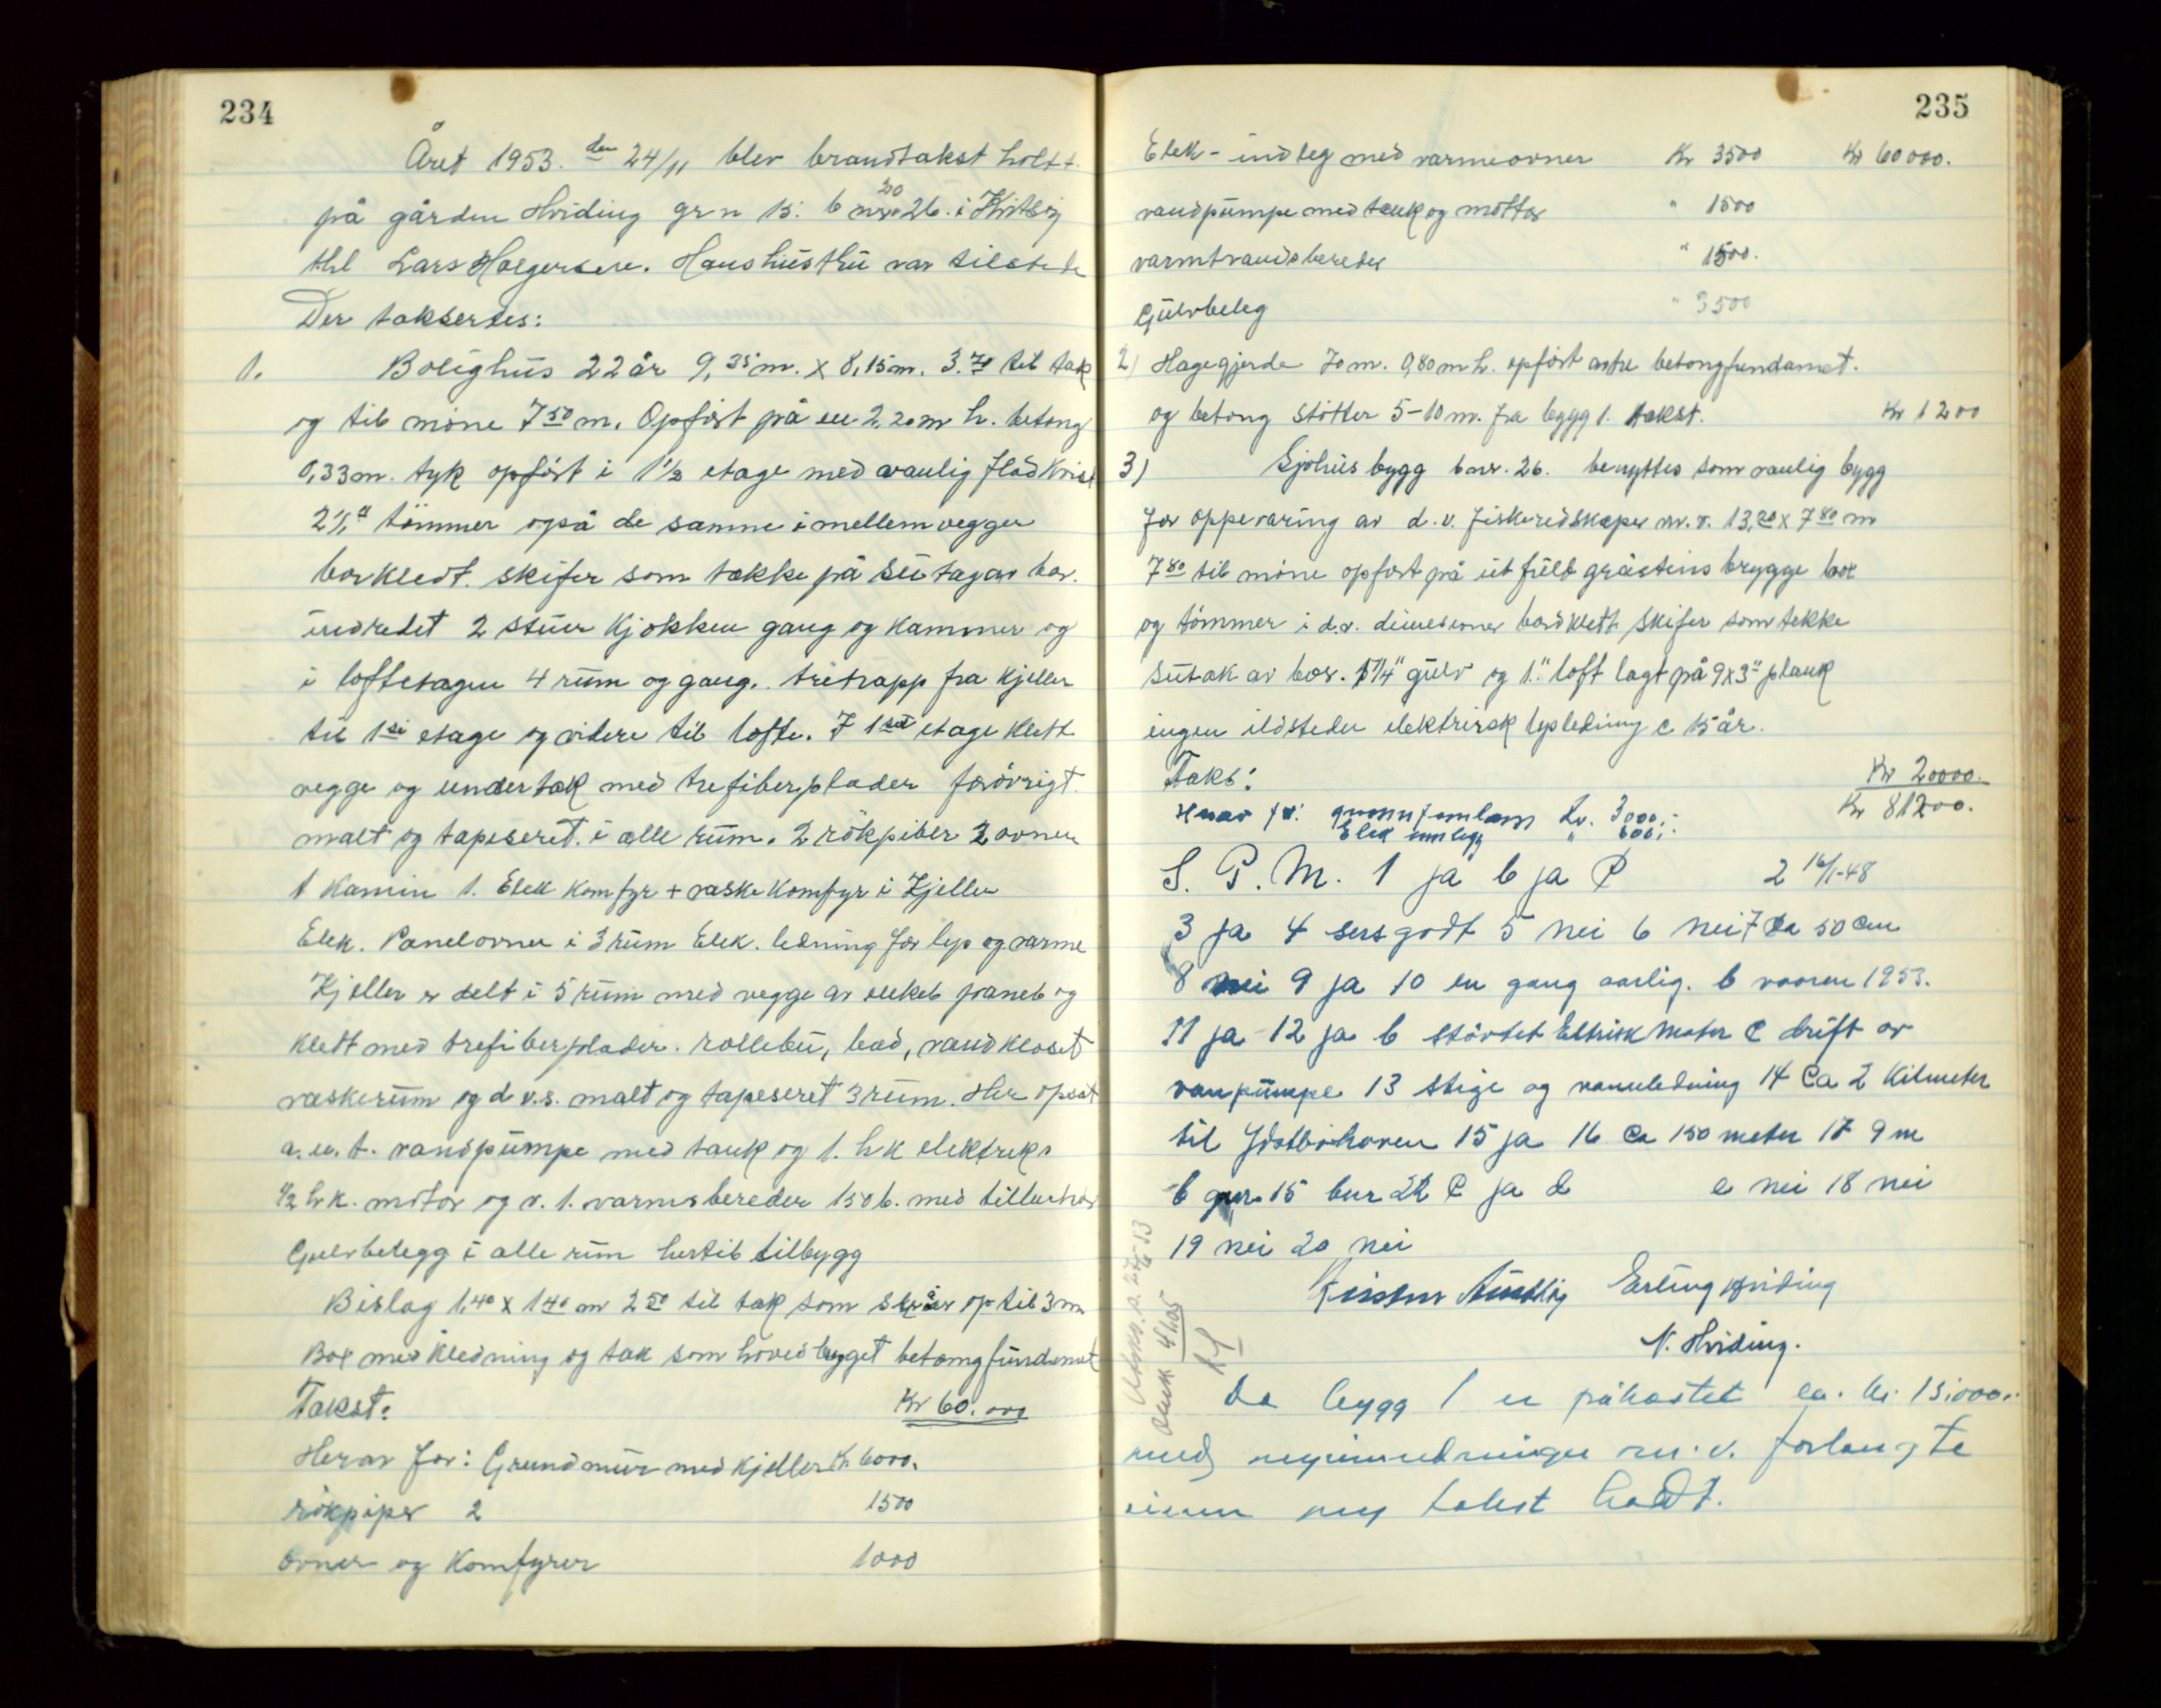 234
Året 1953. den 24/11 blev brandtakst holtt
på gården Hviding gr n 15. b nr 20 26. i
thl Lars Holgersen. Hans hustru var tilstede
Der takserdes:
1. Bolighus 22 år 9,35 m. x 8,15 m. 3.70 til tak
og til möne 7 50 m. Opfört på en 2,20 m h. betong
0,33 m. tyk opfört i 1 1/2 etage med vanlig flad
2 1/2" tömmer også de samme i mellemvegger
borkledt. skifer som tække på sutag av bor.
indredet 2 stuer kjökken gang og kammer og
i loftetagen 4 rum og gang. tretrapp fra kjeller
til 1ste etage og videre til lofte. I 1ste etage klett
vegge og undertak med trefiberplader forövrigt
malt og tapeseret. i alle rum. 2 rökpiber 2 ovner
1 Kamin 1. Elek komfyr + vaskekomfyr i Kjeller
Elek. Panelovner i 3 rum Elek. ledning for lys og varme
Kjeller er delt i 5 rum med vegge av panel og
klett med trefiberplader. rullebu, bad, vandkloset
vaskerum og d v.s. malt og tapeseret 3 rum. Her opsat
a. en. t. vandpumpe med tank og 1. h k elektrisk
1/2 h k. motor og v. 1. varmsbereder 150 l. med tilbehör
Gulvbelegg i alle rum hertil tilbygg
Bislag 1.40 x 1 40 m 2 50 til tak som skrår op til 3 m
Bor med kledning og tak som hovedbygget betongfundamet
Takst: Kr 60.000
Herav for: Grundmur med kjeller K. 6000.
rökpiper 2 1500
Ovner og Komfyrer 1000
235
Elek - indleg med varmeovner Kr 3500 Kr 60 000.
vandpumpe med tank og mottor " 1500
varmtvandsbereder " 1500.
Gulvbeleg " 3500
2) Hagegjerde 70 m. 0,80 m h. opfört av tre betongfundamet.
og betong stötter 5-10 m. fra bygg 1. takst. Kr 1200
3) Sjöhus bygg b nr. 26. benyttes som vanlig bygg
for oppevaring av d. v. fiskeredskaper m. v. 13,20 x 7 80 m
7 80 til möne opfört på utfult gråsteins brygge bor
og tömmer i d. v. dimesioner bordklett skifer som tekke
sutak av bor. 1 1/4" gulv og 1." loft lagt på 9x3" plank
ingen ildsteder elektrisk lysledning c 15 år.
Taks: Kr 20000.
Herav for: grunnfundam kr. 3000.- Kr 81200.
Elek innlegg " 600.-
S. P. M. 1 ja b ja C 2 16/1-48
3 ja 4 sers godt 5 nei 6 nei 7 Ca 50 cm
8 nei 9 ja 10 en gang aarlig. b vaaren 1953.
11 ja 12 ja b störtet Eltrisk Motor C drift av
vanpumpe 13 stige og vannledning 14 Ca 2 Kilmeter
til 15 ja 16 Ca 150 meter 17 9 m
b gnr. 15 bnr 22 C ja d e nei 18 nei
19 nei 20 nei
Erling Hviding
N. Hviding.
Da bygg 1 er påkostet ca. kr 15.000.-
med nyinnredninger m. v. forlangte
eieren ny takst holdt.